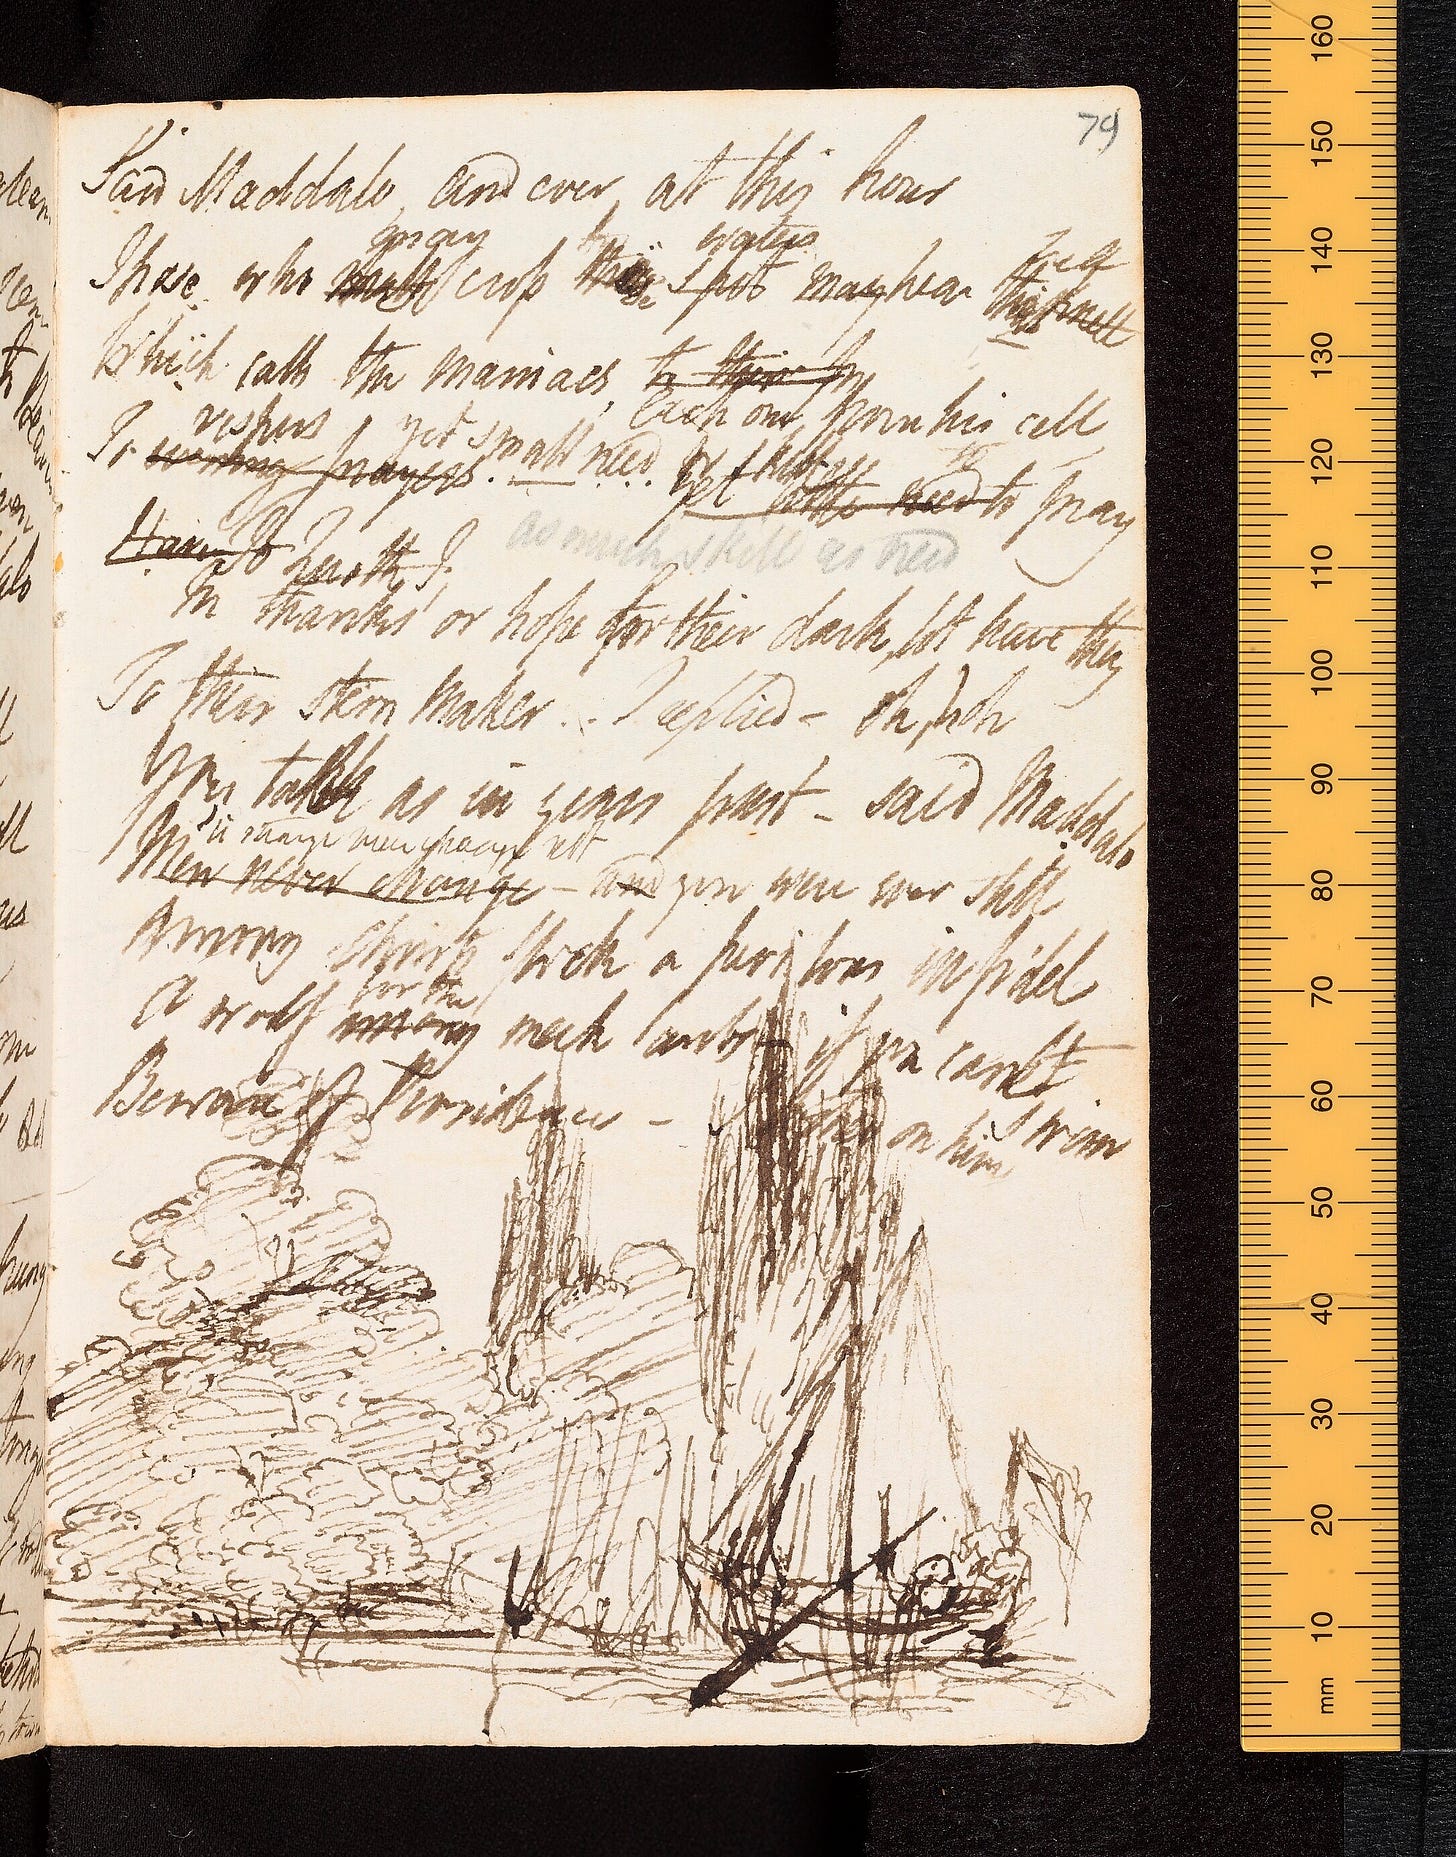 79
Said Maddalo, and ever at this hour
may the waters
Those who must cross this spot may hear that bell
Which calls the maniacs, to their
each one from his cell
vespers, yet small need of skill
To evening prayers. yet little need to pray
as much skill as need
Have to
In thanks or hope for their dark lot have they
To their stern Maker.. I replied – oh, ho
You talk as in years past – said Maddalo
'Tis strange men change not
Men never change – and you were ever still
Among Christs flock a perilous infidel
for the
A wolf among meek lambs – if you cant swim
Beware of Providence – on him
160
150
140
130
120
110
100
90
80
70
60
50
40
30
20
10
mm